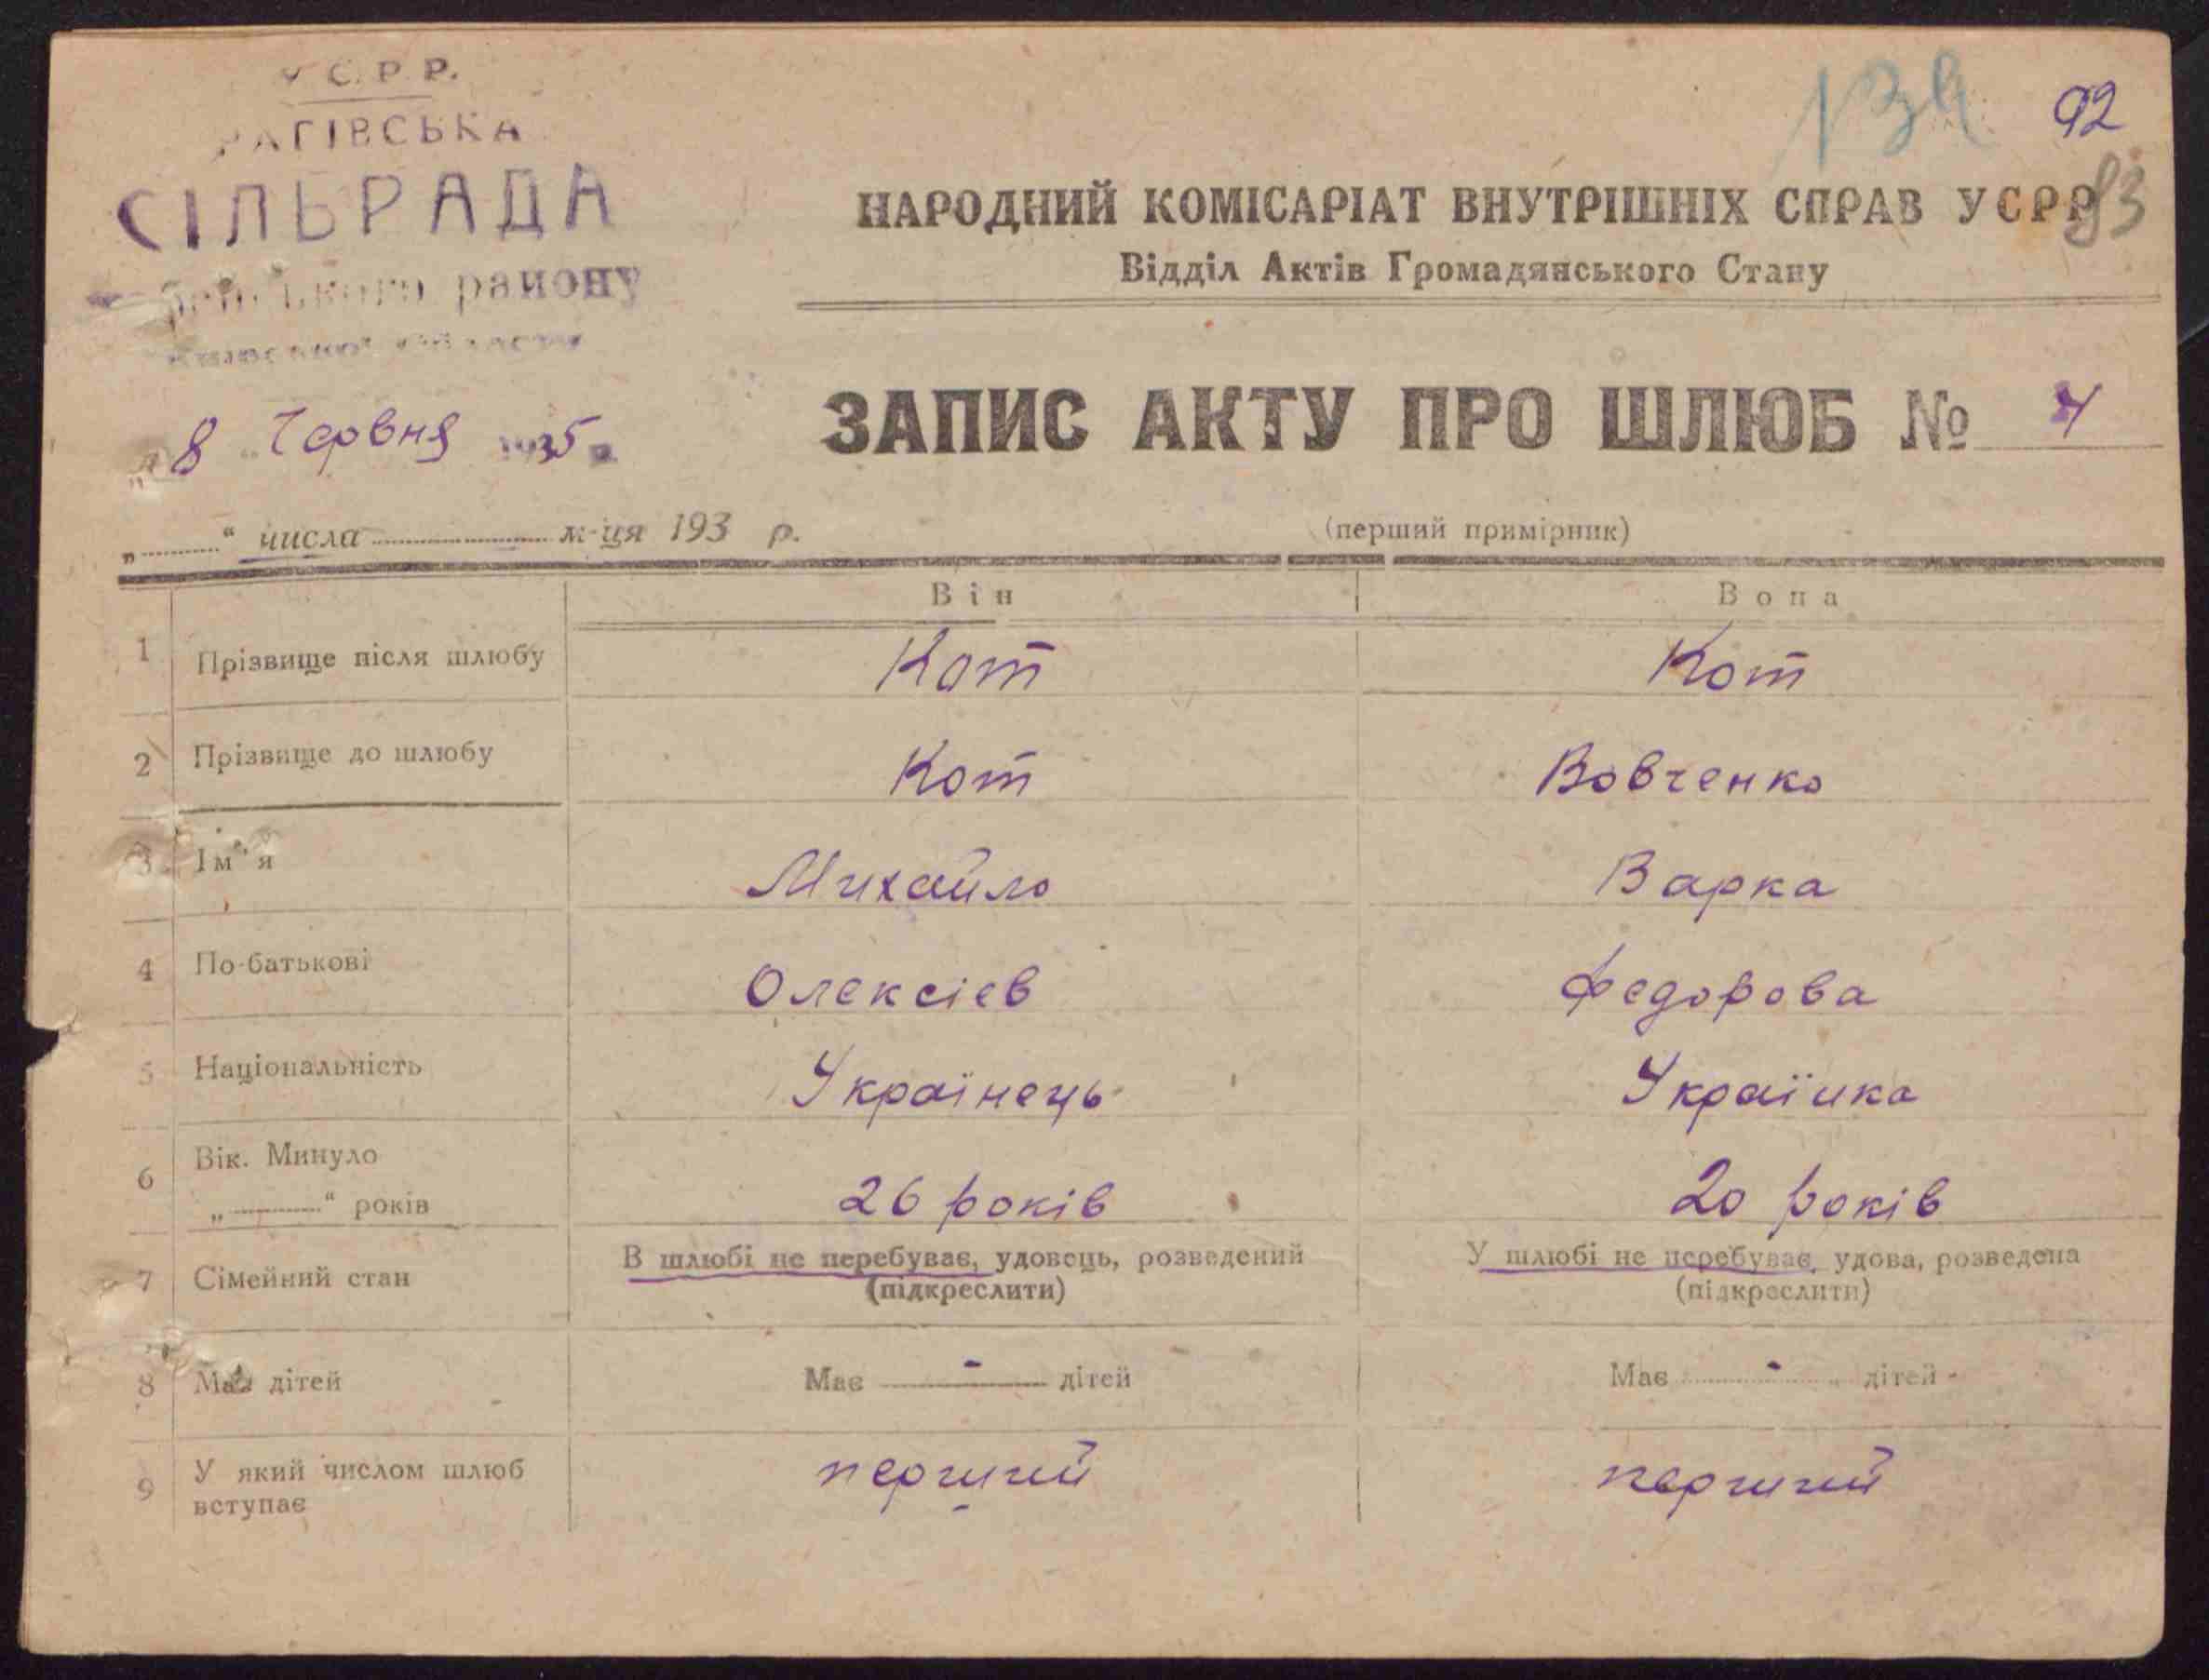 У С. Р. Р.
СІЛЬРАДА
району
Київської області
8 Червня 1935 р.
134
92
93
НАРОДНИЙ КОМІСАРІАТ ВНУТРІШНІХ СПРАВ УСРР
Відділ Актів Громадянського Стану
ЗАПИС АКТУ ПРО ШЛЮБ № 7
„ “ числа м-ця 193 р.
(перший примірник)
Він Вона
1 Прізвище після шлюбу Кот Кот
2 Прізвище до шлюбу Кот Вовченко
3 Ім'я Михайло Варка
4 По-батькові Олексієв Федорова
5 Національність Українець Українка
6 Вік. Минуло
„ “ років 26 років 20 років
7 Сімейний стан В шлюбі не перебуває, удовець, розведений У шлюбі не перебуває, удова, розведена
(підкреслити) (підкреслити)
8 Має дітей Має - дітей Має - дітей
9 У який числом шлюб перший перший
вступає